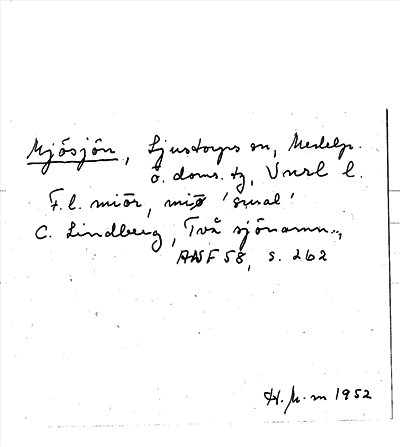 Mjösjön, Ljustorps sn, Medelp.
ö. doms. tg, Vnrl l.
F.l. miör, miø 'smal'
C. Lindberg, Två sjönamn..,
ANF 58, s. 262
H. M-m 1952